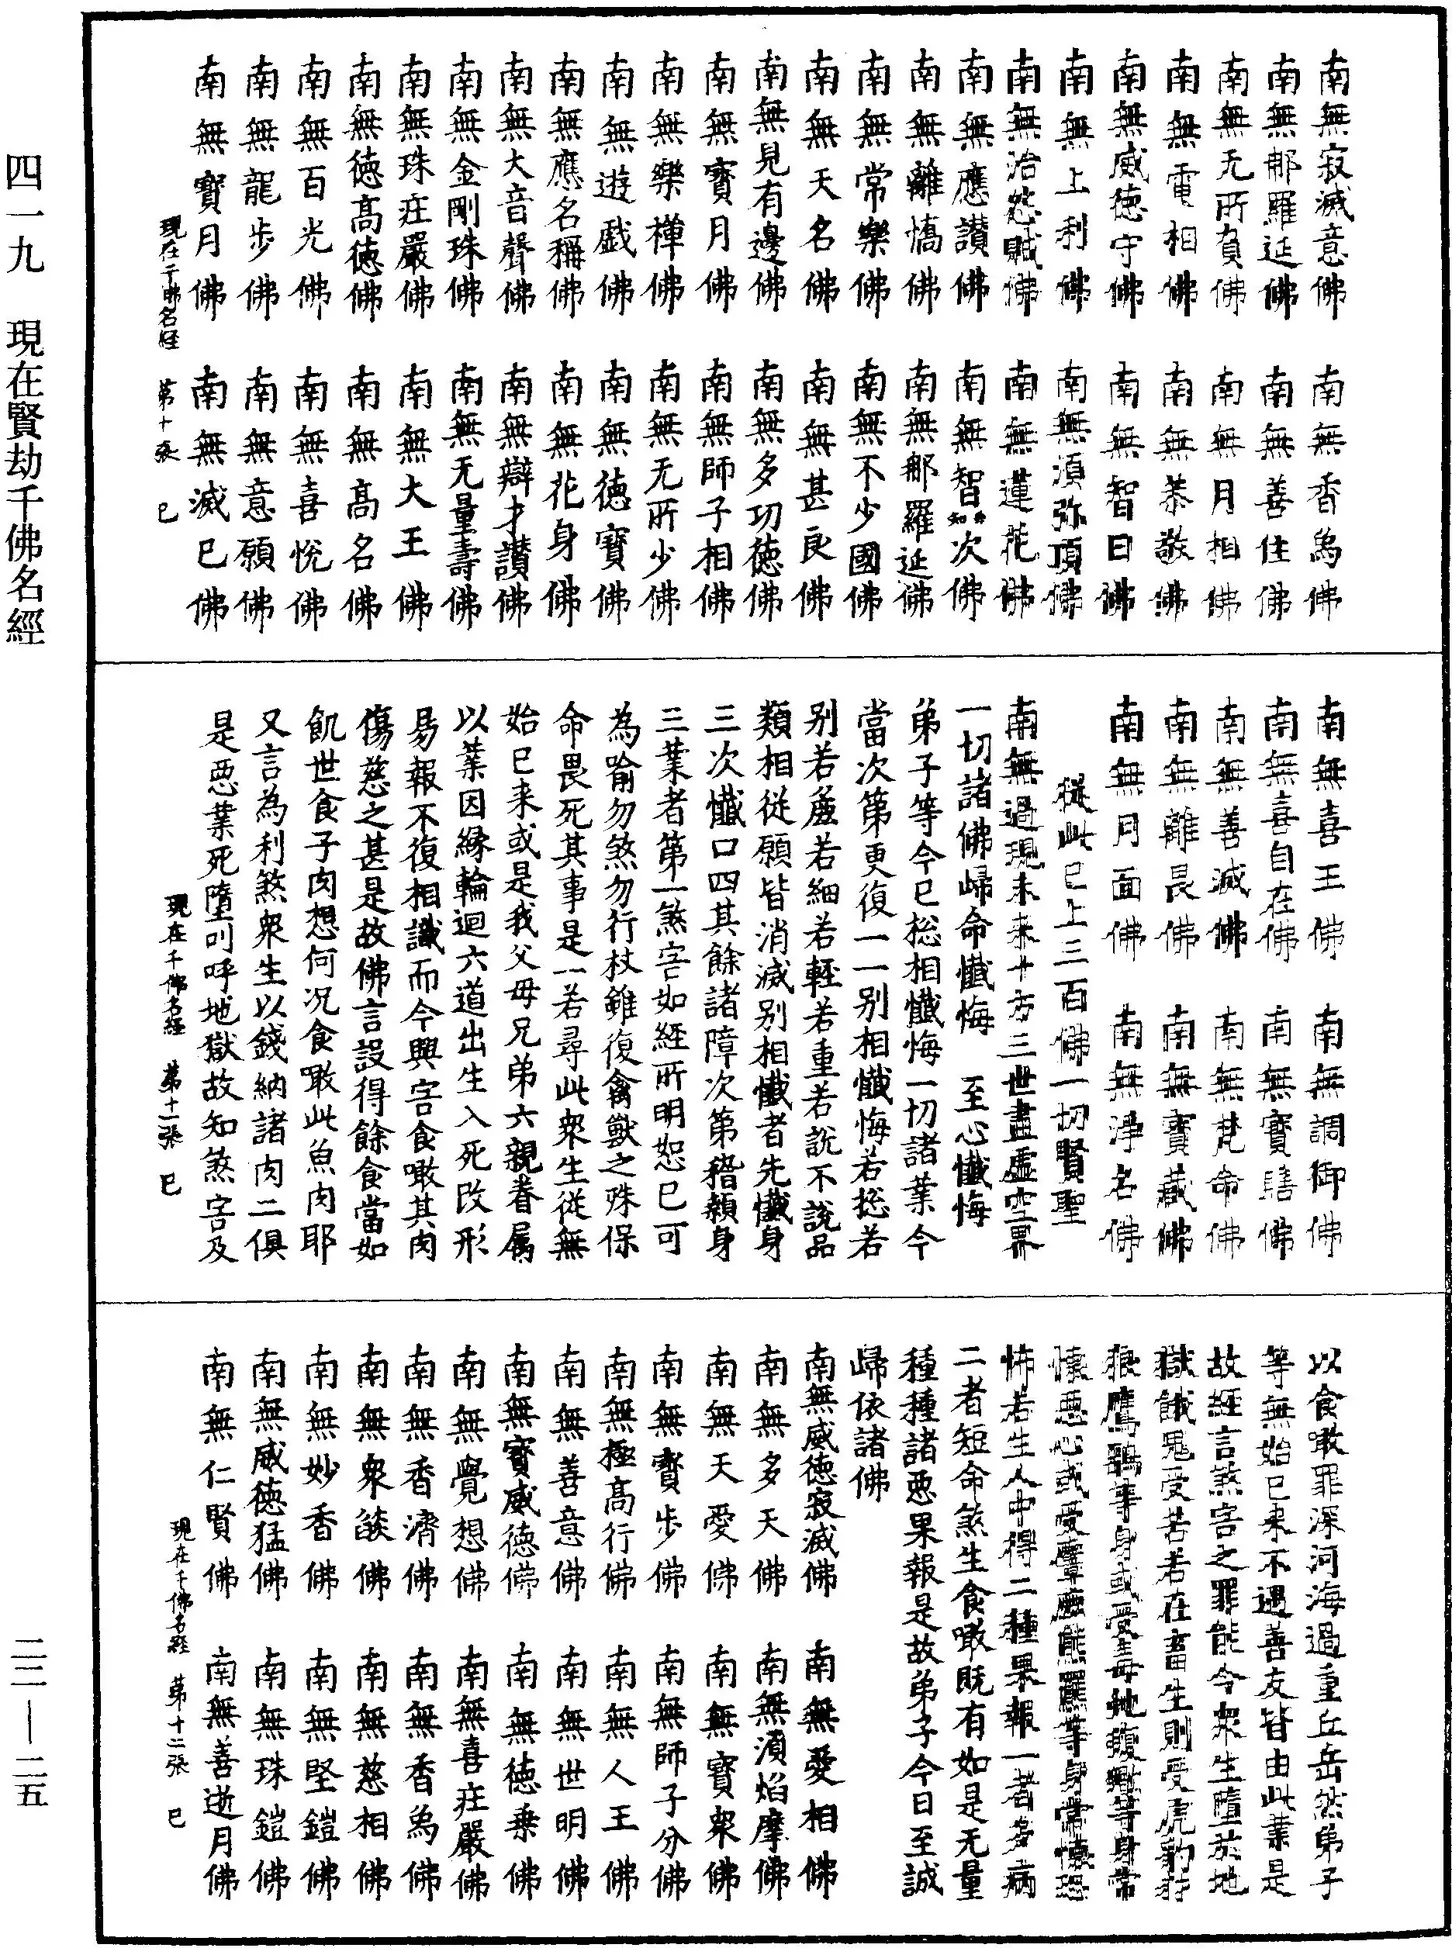 四一九　現在賢劫千佛名經
二二—二五
南無寂滅意佛　南無香象佛
南無那羅延佛　南無善住佛
南無无所負佛　南無月相佛
南無電相佛　南無恭敬佛
南無威德守佛　南無智日佛
南無上利佛　南無須弥頂佛
南無治怨賊佛　南無蓮花佛
南無應讚佛　南無智次佛
南無離憍佛　南無那羅延佛
南無常樂佛　南無不少國佛
南無天名佛　南無甚良佛
南無見有邊佛　南無多功德佛
南無寶月佛　南無師子相佛
南無樂禪佛　南無无所少佛
南無遊戲佛　南無德寶佛
南無應名稱佛　南無花身佛
南無大音聲佛　南無辯才讚佛
南無金剛珠佛　南無无量壽佛
南無珠莊嚴佛　南無大王佛
南無德高德佛　南無高名佛
南無百光佛　南無喜悅佛
南無龍步佛　南無意願佛
南無寶月佛　南無滅巳佛
現在千佛名經　第十張　巳
南無喜王佛　南無調御佛
南無喜自在佛　南無寶髻佛
南無善滅佛　南無梵命佛
南無離畏佛　南無寶藏佛
南無月面佛　南無淨名佛
從此巳上三百佛一切賢聖
南無過現未来十方三世盡虛空界
一切諸佛歸命懺悔　至心懺悔
弟子等今巳捴相懺悔一切諸業今
當次第更復一一別相懺悔若捴若
別若麁若細若輕若重若說不說品
類相從願皆消滅別相懺者先懺身
三次懺口四其餘諸障次第稽顙身
三業者第一煞害如經所明恕巳可
為喻勿煞勿行杖雖復禽獸之殊保
命畏死其事是一若尋此衆生從無
始巳来或是我父母兄弟六親眷屬
以業因緣輪迴六道出生入死改形
易報不復相識而今興害食噉其肉
傷慈之甚是故佛言設得餘食當如
飢世食子肉想何况食噉此魚肉耶
又言為利煞衆生以錢納諸肉二俱
是惡業死墮叫呼地獄故知煞害及
現在千佛名經　第十一張　巳
以食噉罪深河海過重丘岳然弟子
等無始巳来不遇善友皆由此業是
故經言煞害之罪能令衆生墮於地
獄餓鬼受苦若在畜生則受虎豹豺
狼鷹鷂等身或受毒虵蝮蠍等身常
懷惡心或受麞鹿熊羆等身常懷恐
怖若生人中得二種果報一者多病
二者短命煞生食噉既有如是无量
種種諸惡果報是故弟子今日至誠
歸依諸佛
南無威德寂滅佛　南無受相佛
南無多天佛　南無須焰摩佛
南無天愛佛　南無寶衆佛
南無寶步佛　南無師子分佛
南無極高行佛　南無人王佛
南無善意佛　南無世明佛
南無寶威德佛　南無德乗佛
南無覺想佛　南無喜莊嚴佛
南無香濟佛　南無香象佛
南無衆燄佛　南無慈相佛
南無妙香佛　南無堅鎧佛
南無威德猛佛　南無珠鎧佛
南無仁賢佛　南無善逝月佛
現在千佛名經　第十二張　巳